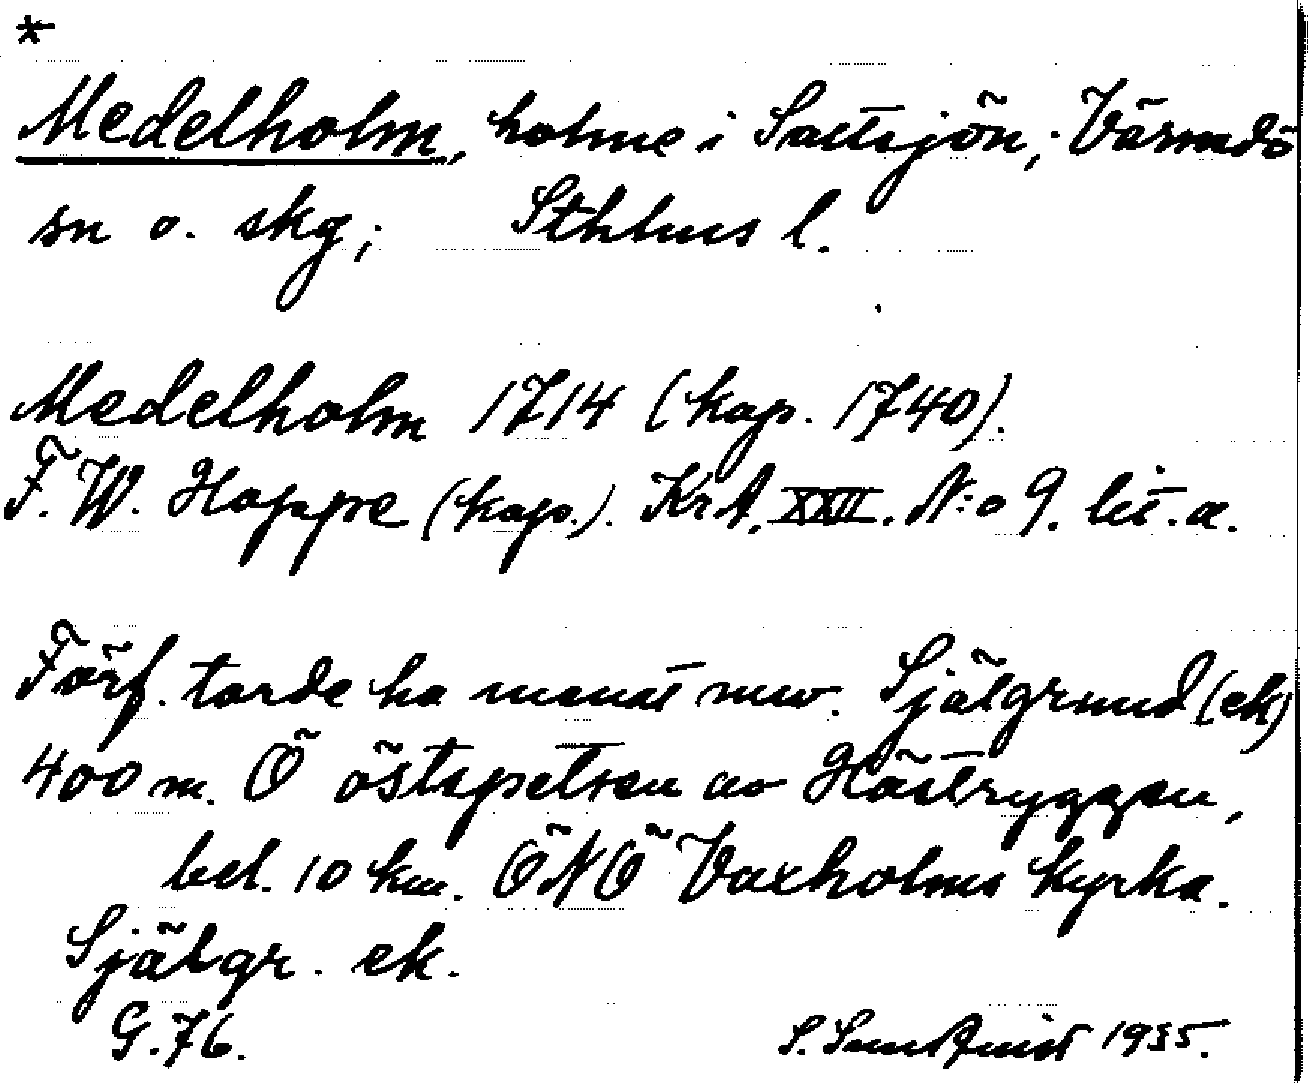 *
Medelholm, holme i Saltsjön; Värmdö
sn o. skg; Sthlms l.
Medelholm 1714 (kop. 1740).
F. W. Hoppe (kop.). KrA. XXII. N:o 9. lit. a.
Förf. torde ha menat nuv. Själgrund (ek)
400 m. Ö östspetsen av Hästryggen,
bel. 10 km. ÖNÖ Vaxholms kyrka.
Själgr. ek.
G. 76. 1935.